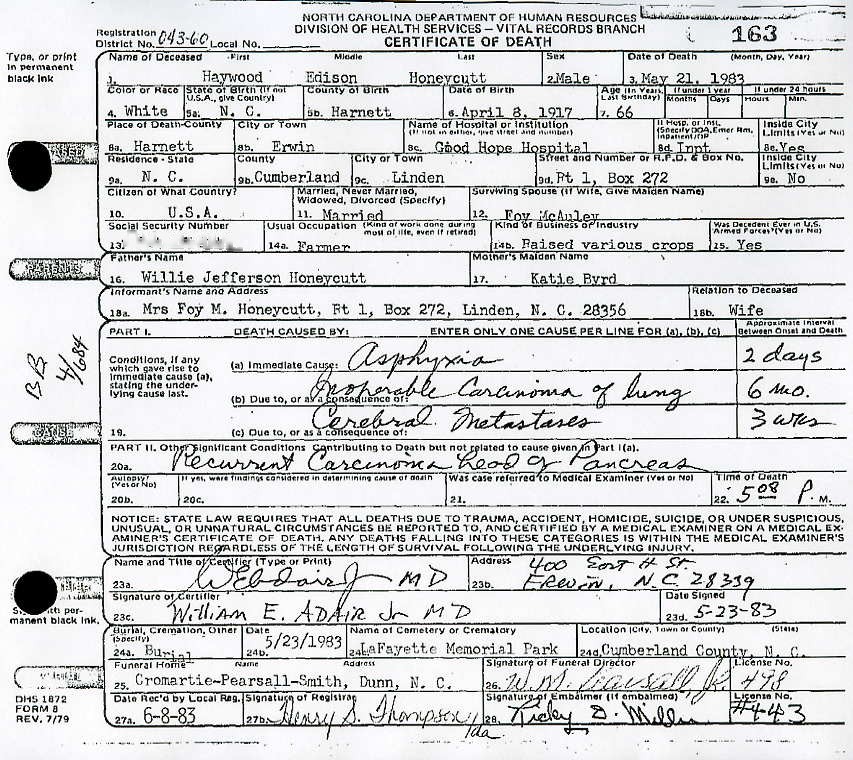 NORTH CAROLINA DEPARTMENT OF HUMAN RESOURCES
DIVISION OF HEALTH SERVICES — VITAL RECORDS BRANCH
CERTIFICATE OF DEATH
163
Registration District No. 043-60 Local No.
Type, or print in permanent black ink
Name of Deceased First Middle Last Sex Date of Death (Month, Day, Year)
1. Haywood Edison Honeycutt 2. Male 3. May 21, 1983
Color or Race State of Birth (If not U.S.A., give Country) County of Birth Date of Birth Age (In Years, Last Birthday) If under 1 year Months Days If under 24 hours Hours Min.
4. White 5a. N. C. 5b. Harnett 6. April 8, 1917 7. 66
Place of Death-County City or Town Name of Hospital or Institution (If not in either, give street and number) If Hosp. or Inst. (Specify DOA, Emer Rm, Inpatient/OP Inside City Limits? (Yes or No)
8a. Harnett 8b. Erwin 8c. Good Hope Hospital 8d. Inpt 8e. Yes
Residence - State County City or Town Street and Number or R.F.D. & Box No. Inside City Limits (Yes or No)
9a. N. C. 9b. Cumberland 9c. Linden 9d. Rt 1, Box 272 9e. No
Citizen of What Country? Married, Never Married, Widowed, Divorced (Specify) Surviving Spouse (If Wife, Give Maiden Name)
10. U.S.A. 11. Married 12. Foy McAuley
Social Security Number Usual Occupation (Kind of work done during most of life, even if retired) Kind of Business or Industry Was Decedent Ever in U.S. Armed Forces? (Yes or No)
13. 14a. Farmer 14b. Raised various crops 15. Yes
PARENTS
Father's Name Mother's Maiden Name
16. Willie Jefferson Honeycutt 17. Katie Byrd
Informant's Name and Address Relation to Deceased
18a. Mrs Foy M. Honeycutt, Rt 1, Box 272, Linden, N. C. 28356 18b. Wife
PART I. DEATH CAUSED BY: ENTER ONLY ONE CAUSE PER LINE FOR (a), (b), (c) Approximate Interval Between Onset and Death
Conditions, if any which gave rise to immediate cause (a), stating the underlying cause last.
(a) Immediate Cause: Asphyxia 2 days
(b) Due to, or as a consequence of: Inoperable Carcinoma of lung 6 mo.
19. (c) Due to, or as a consequence of: Cerebral Metastases 3 wks
BB
4/684
CAUSE
PART II. Other Significant Conditions Contributing to Death but not related to cause given in Part I(a).
20a. Recurrent Carcinoma head of Pancreas
Autopsy? (Yes or No) If yes, were findings considered in determining cause of death Was case referred to Medical Examiner (Yes or No) Time of Death
20b. 20c. 21. 22. 5 08 P. M.
NOTICE: STATE LAW REQUIRES THAT ALL DEATHS DUE TO TRAUMA, ACCIDENT, HOMICIDE, SUICIDE, OR UNDER SUSPICIOUS,
UNUSUAL, OR UNNATURAL CIRCUMSTANCES BE REPORTED TO, AND CERTIFIED BY A MEDICAL EXAMINER ON A MEDICAL EX-
AMINER'S CERTIFICATE OF DEATH. ANY DEATHS FALLING INTO THESE CATEGORIES IS WITHIN THE MEDICAL EXAMINER'S
JURISDICTION REGARDLESS OF THE LENGTH OF SURVIVAL FOLLOWING THE UNDERLYING INJURY.
Name and Title of Certifier (Type or Print) Address 400 East H St.
23a. WE Adair Jr MD 23b. Erwin, N.C. 28339
Signature of Certifier Date Signed
23c. William E. ADAIR Jr MD 23d. 5-23-83
manent black ink.
Burial, Cremation, Other (Specify) Date Name of Cemetery or Crematory Location (City, Town or County) (State)
24a. Burial 24b. 5/23/1983 24c. LaFayette Memorial Park 24d. Cumberland County, N. C.
Funeral Home Name Address Signature of Funeral Director License No.
25. Cromartie-Pearsall-Smith, Dunn, N. C. 26. W. M. Pearsall, Jr. 498
Date Rec'd by Local Reg. Signature of Registrar Signature of Embalmer (If embalmed) License No.
27a. 6-8-83 27b. Henry S. Thompson/ Ida 28. Ricky D. #443
DHS 1872
FORM 8
REV. 7/79